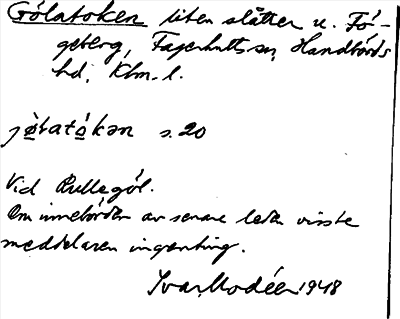 Gölatoken liten slåtter u. Fö-
geberg, Fagerhults sn, Handbörds
hd, Klm. l.
jö̀latókən s. 20
Vid Rullegöl.
Om innebörden av senare leden visste
meddelaren ingenting.
Ivar Modéer 1948